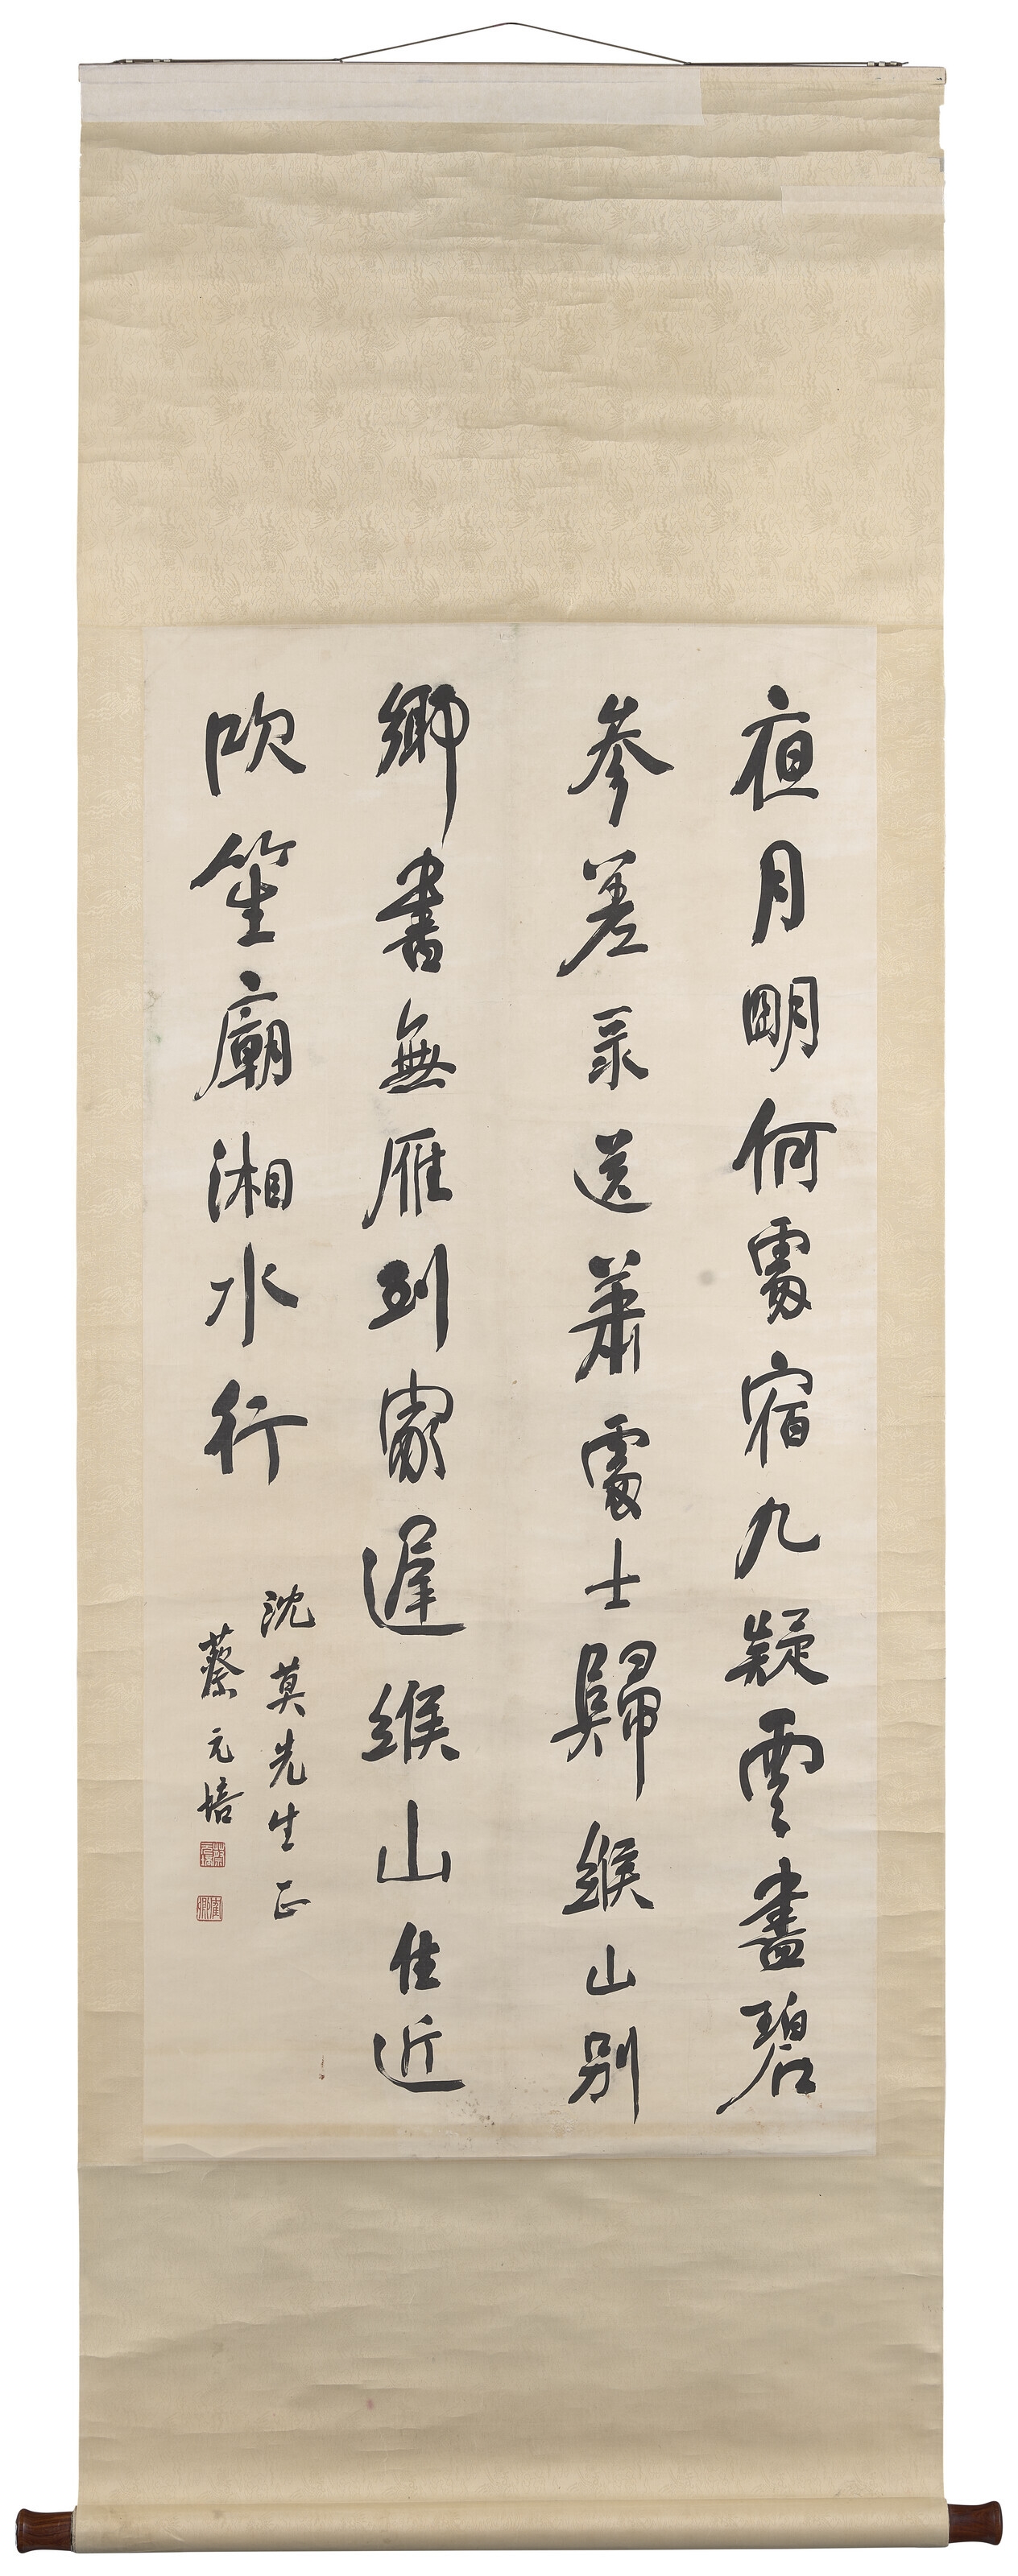 夜月明何處宿九疑雲盡碧
參差录送蕭處士歸緱山別
鄉書無雁到家遲緱山住近
吹笙廟湘水行
沈莫先生正
蔡元培